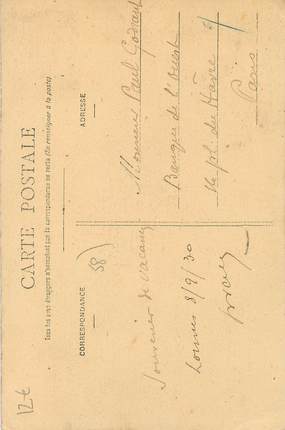 CARTE POSTALE
Tous les pays étrangers n'acceptent pas la correspondance au recto (Se renseigner à la poste)
CORRESPONDANCE
ADRESSE
58)
Souvenir de vacances
8/9/30
Monsieur Paul
Banque de l'Ouest
pl. du Hâvre
Paris
12€